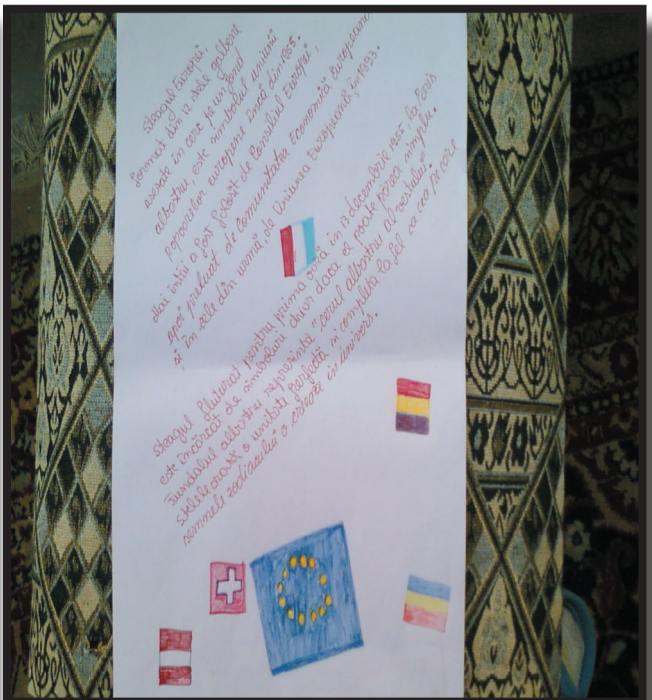 Steagul Europei,
format din 12 stele galbene
asezate în cerc pe un fond
albastru, este simbolul uniunii
popoarelor europene încă din 1955.
Mai întîi a fost folosit de Consiliul Europei,
apoi preluat de Comunitatea Economică Europeană
și în cele din urmă de Uniunea Europeană, în 1993.
Steagul fluturat pentru prima oară în 13 decembrie 1955 la Paris
este încărcat de simboluri chiar daca el poate părea simplu.
Fundalul albastru reprezintă "cerul albastru al vestului"
stelele arată o unitate perfectă si completă la fel ca cea pe care
semnele zodiacului o creează în univers.